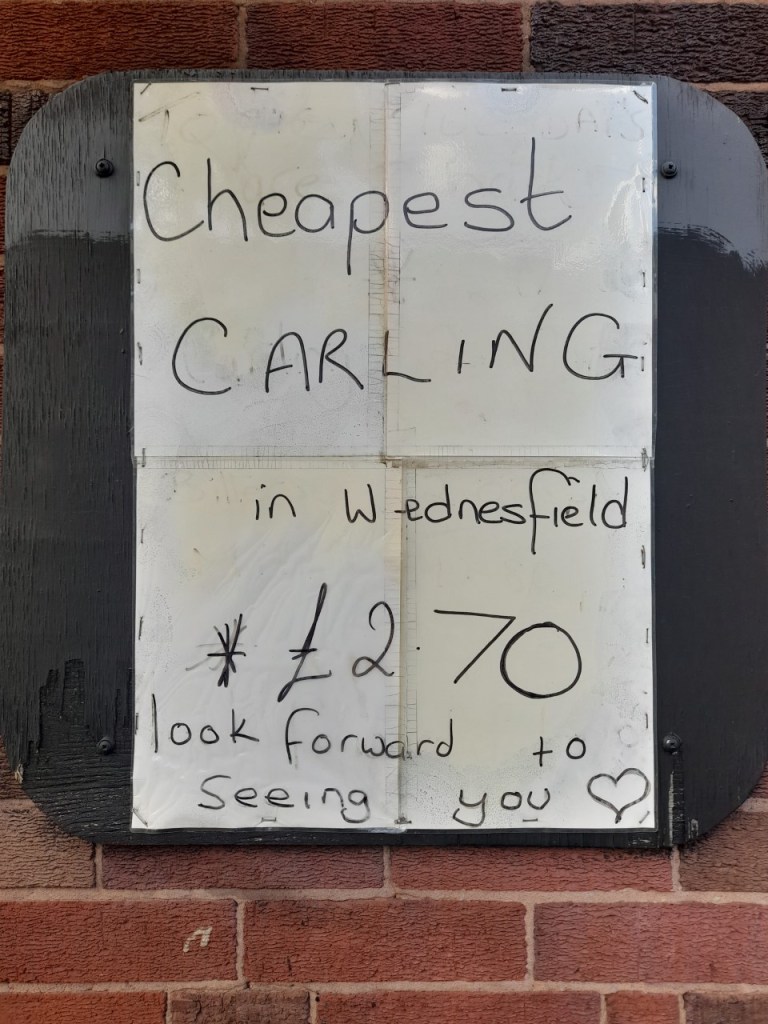 Cheapest
CARLING
in Wednesfield
* £2.70
look forward to
seeing you ♡